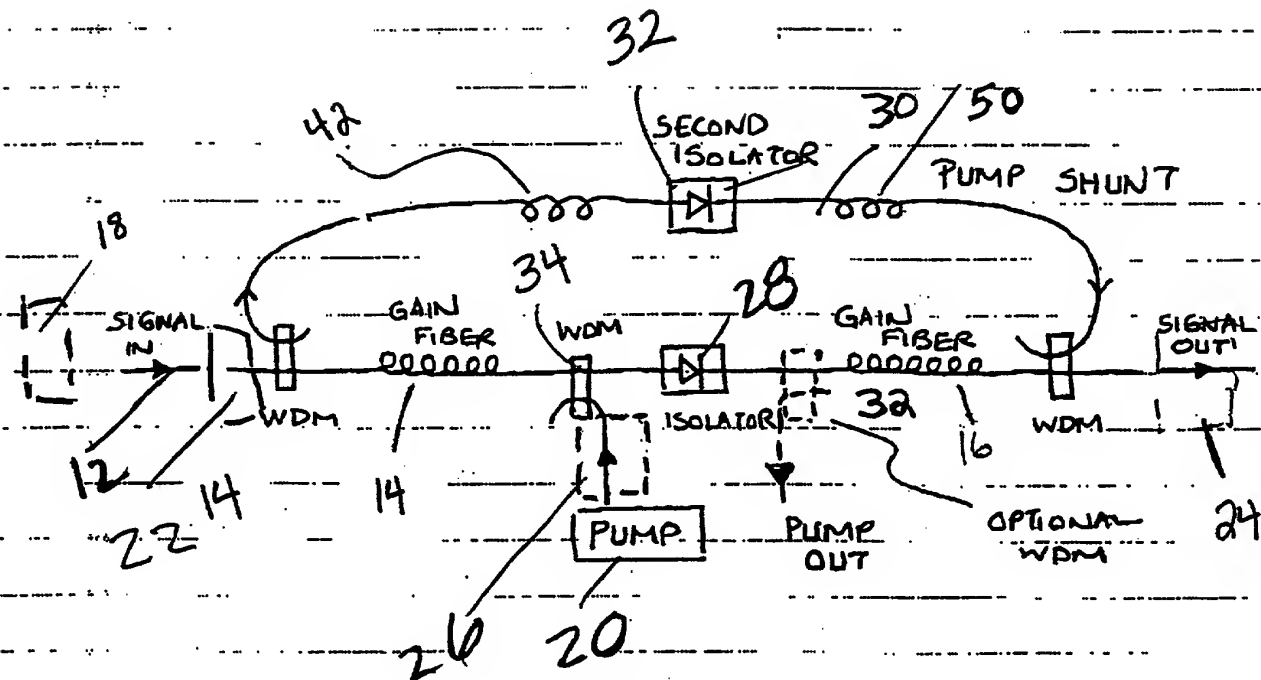 32
42
30
50
SECOND
ISOLATOR
PUMP SHUNT
18
34
28
SIGNAL
IN
GAIN
FIBER
WDM
GAIN
FIBER
SIGNAL
OUT
WDM
ISOLATOR
32
WDM
12
14
14
16
22
26
PUMP
PUMP
OUT
OPTIONAL
WDM
24
20